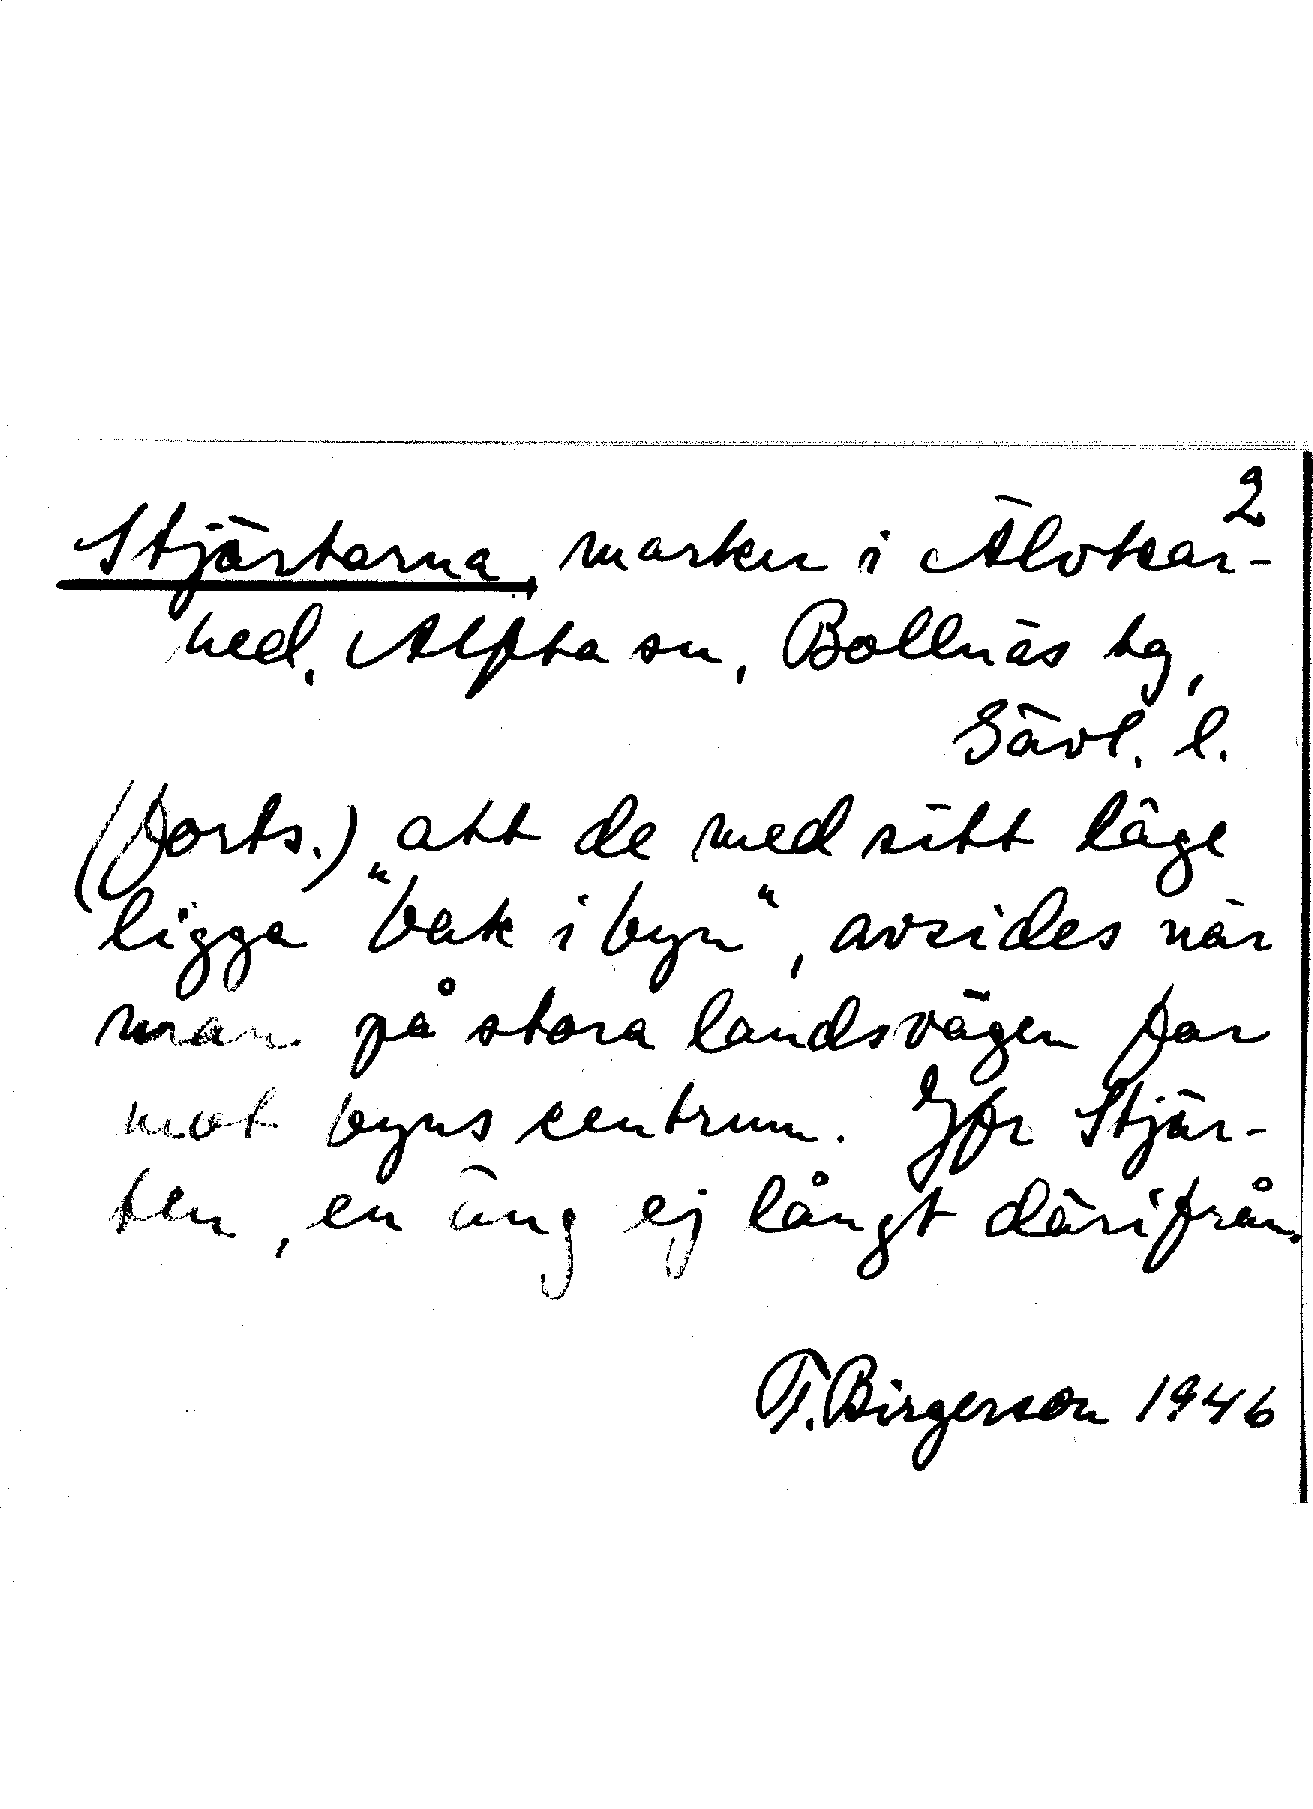 2
Stjärtarna, marken i Älvkar-
hed, Alfta sn, Bollnäs tg,
Gävl. l.
(forts.) att de med sitt läge
ligga "bak i byn", avsides när
man på stora landsvägen far
mot byns centrum. Jfr Stjär-
ten, en äng ej långt därifrån.
F. Birgerson 1946